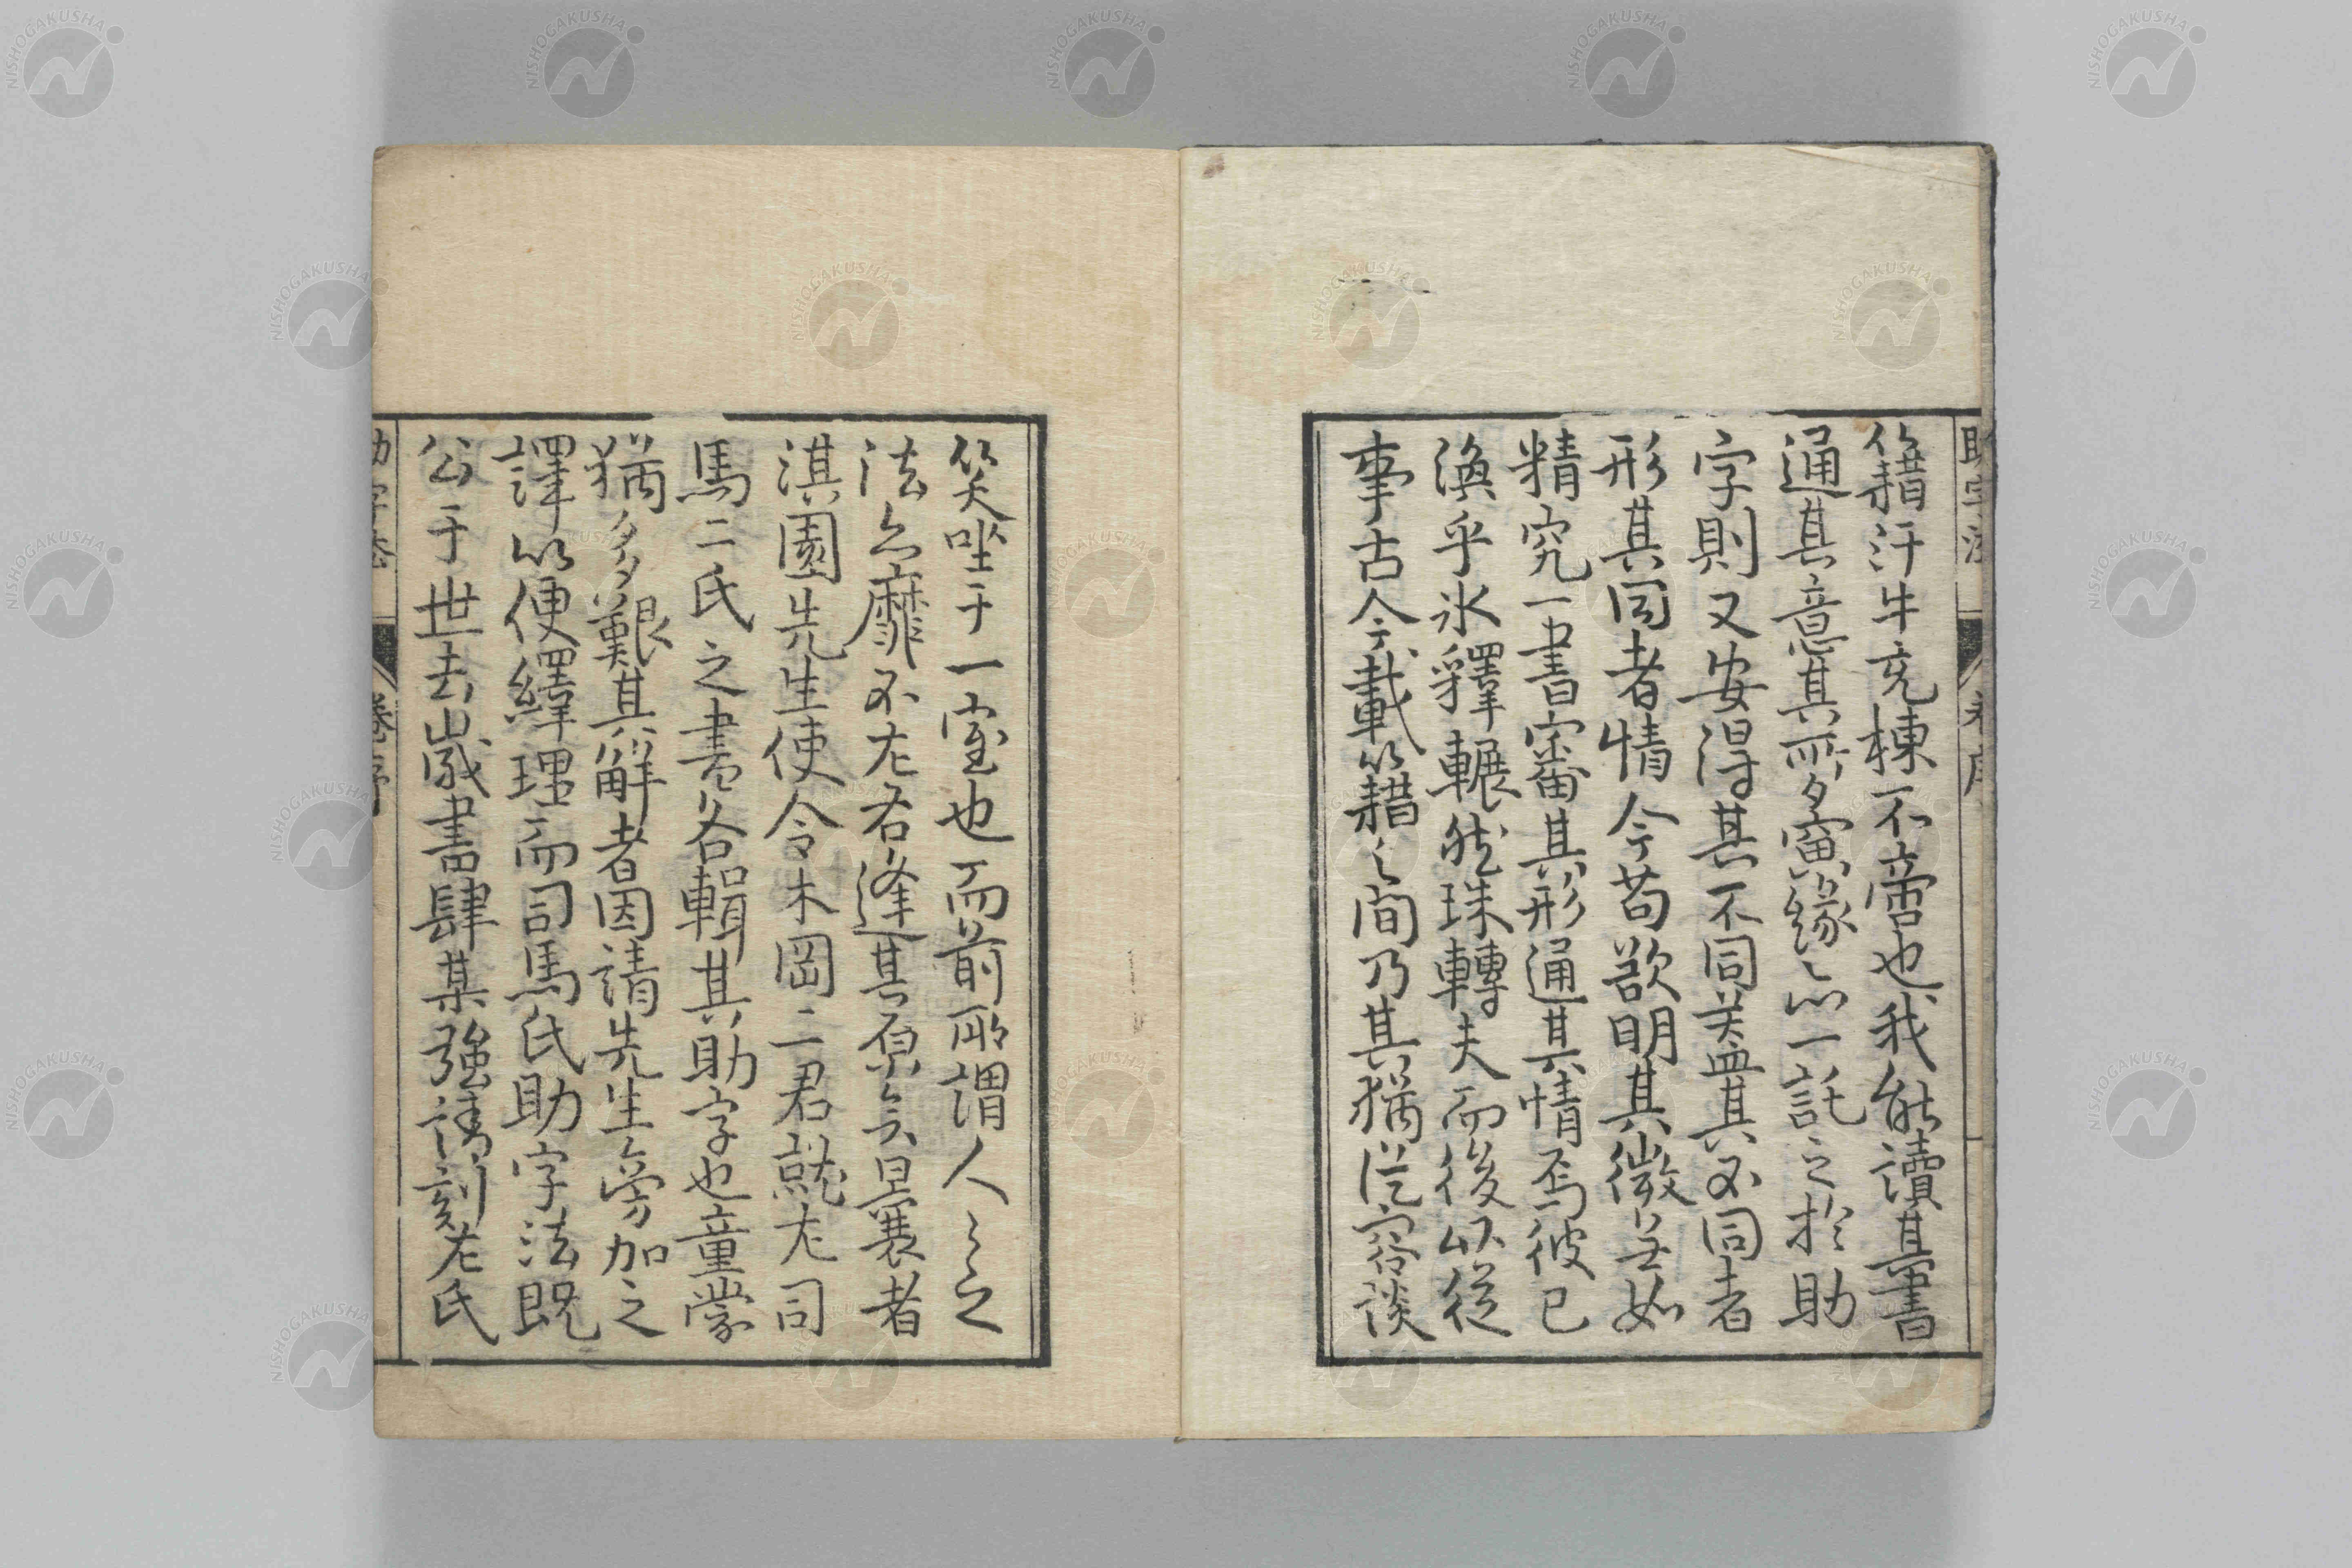 籍汗牛充棟不啻也我能讀其書
通其意其所夤緣亦一託之於助
字則又安得其不同羙蓋其必同者
形其同者情今苟欲明其微莫如
精究一書審其形通其情焉彼已
渙乎氷釋輾然珠轉夫而後以從
事古今載籍之間乃其猶從容談
笑坐于一室也而前所謂人人之
法亦靡不左右逢其原矣曩者
淇園先生使令木岡二君就左司
馬二氏之書各輯其助字也童蒙
猶多艱其解者因請先生旁加之
譯以便繹理而司馬氏助字法既
公于世去歲書肆某強請刻左氏
助字法
卷序